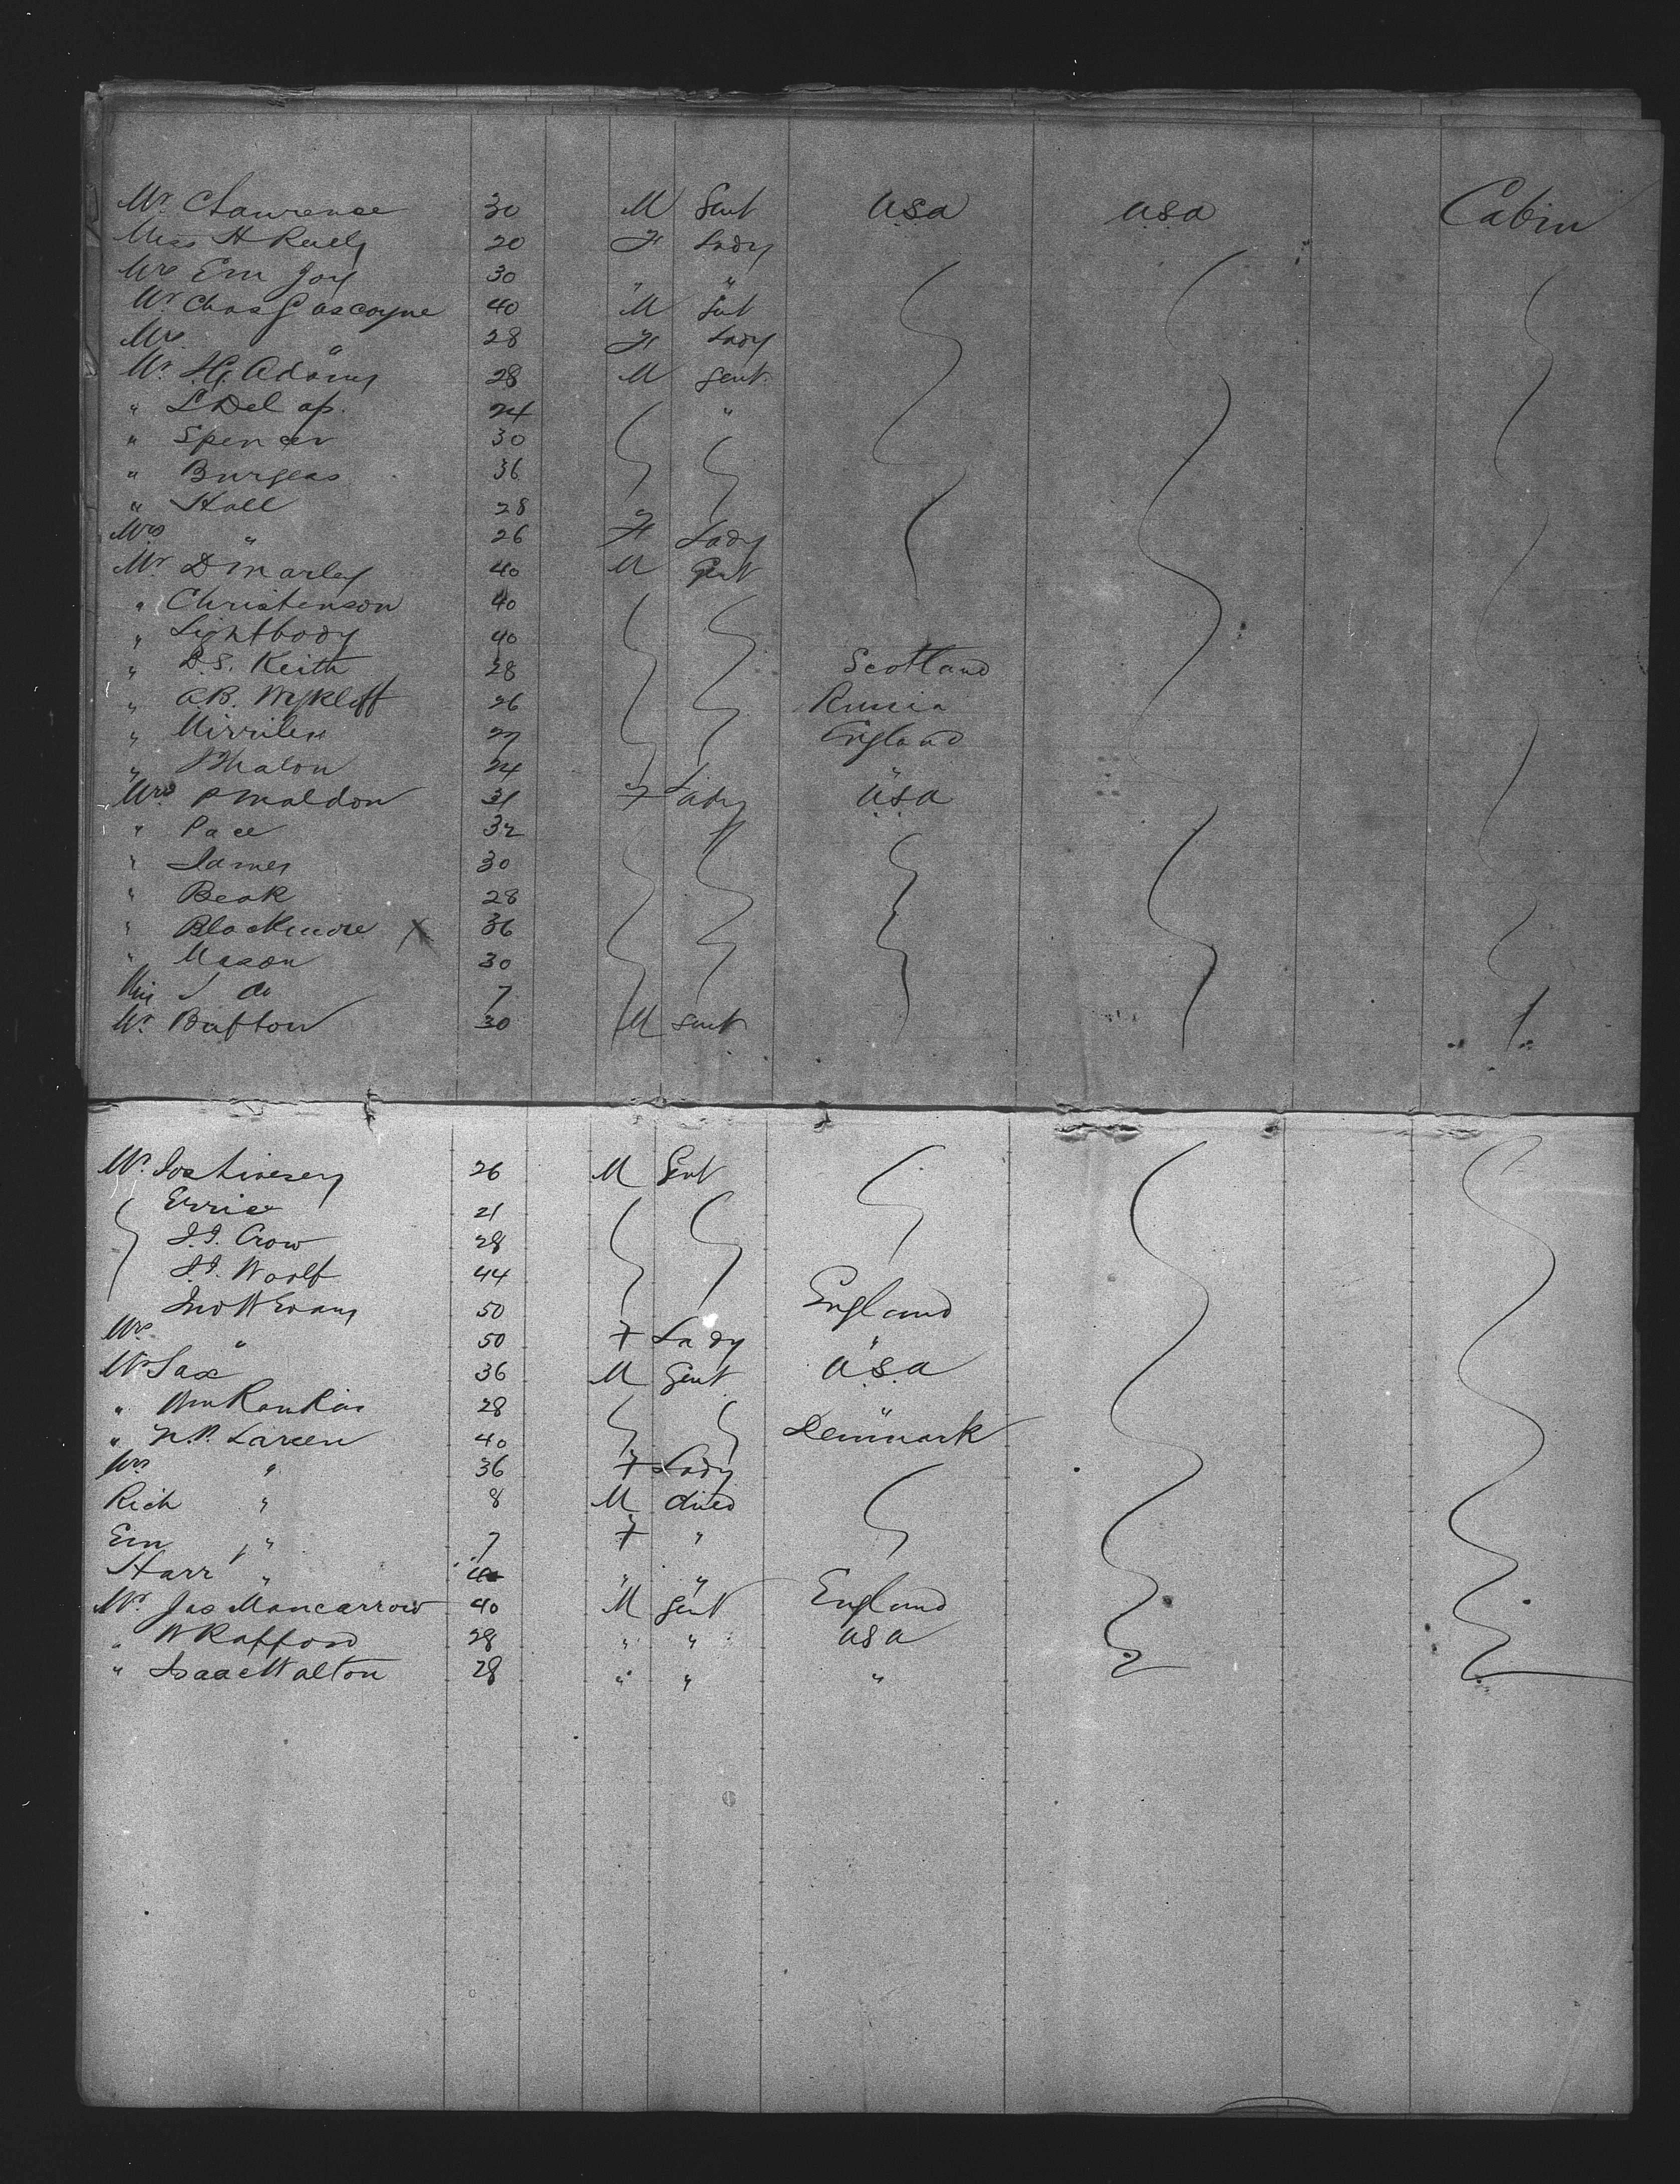 Mr. C Lawrence 30 M Gent U.S.A U.S.A Cabin
Miss H Ruely 20 F Lady
Mrs Em Joy 30 " "
Mr Chas Gascoyne 40 M Gent
Mrs " 28 F Lady
Mr H. Adams 28 M Gent.
" L Delap. 24 "
" Spencer 30
" Burgess 36
" Hall 28
Mrs " 26 F Lady
Mr D Marley 40 M Gent
" Christenson 40
" Lightbody 40
" D.S. Keith 28 Scotland
" A.B. Wykloff 26 Russia
" Mirrilen 27 England
" Malon 24 "
Mrs P Maldon 31 F Lady U.S.A
" Pace 32 "
" James 30
" Beak 28
" Blackmore X 36
" Mason 30
Miss J do 7
Mr. Bafton 30 M Gent
Mr. Jos Livesey 26 M Gent
Errice 21
J.J. Crow 28
J.J. Woolf 44
Jno W Evans 50 England
Mrs " 50 F Lady "
Mr Sax 36 M Gent U.S.A
" Wm Rankin 28 "
" N.P. Larsen 40 Denmark
Mrs " 36 F Lady
Rich " 8 M child
Em " 7 F "
Harr " " "
Mr. Jas Mancarrow 40 M Gent England
" W Rafford 28 " " USA
" Isaac Walton 28 " " "